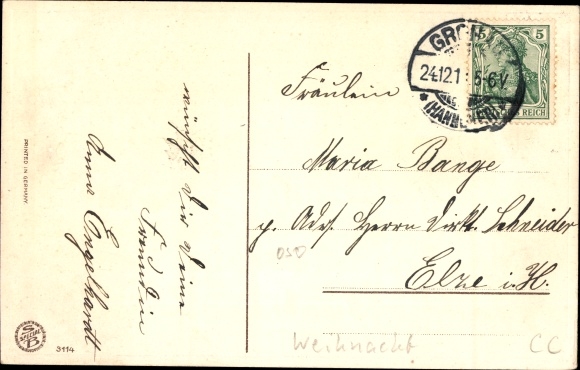 wünscht dir deine
Freundin
Anna Engelhardt
PRINTED IN GERMANY
S
SPECIAL
B
3114
GRO
24.12.1
5-6V.
*(HANNOVER)*
5 5
REICH
Fräulein
Maria Bange
p. Adr. Herrn Dirkt. Schneider
Elze i. H.
050
Weihnacht
CC